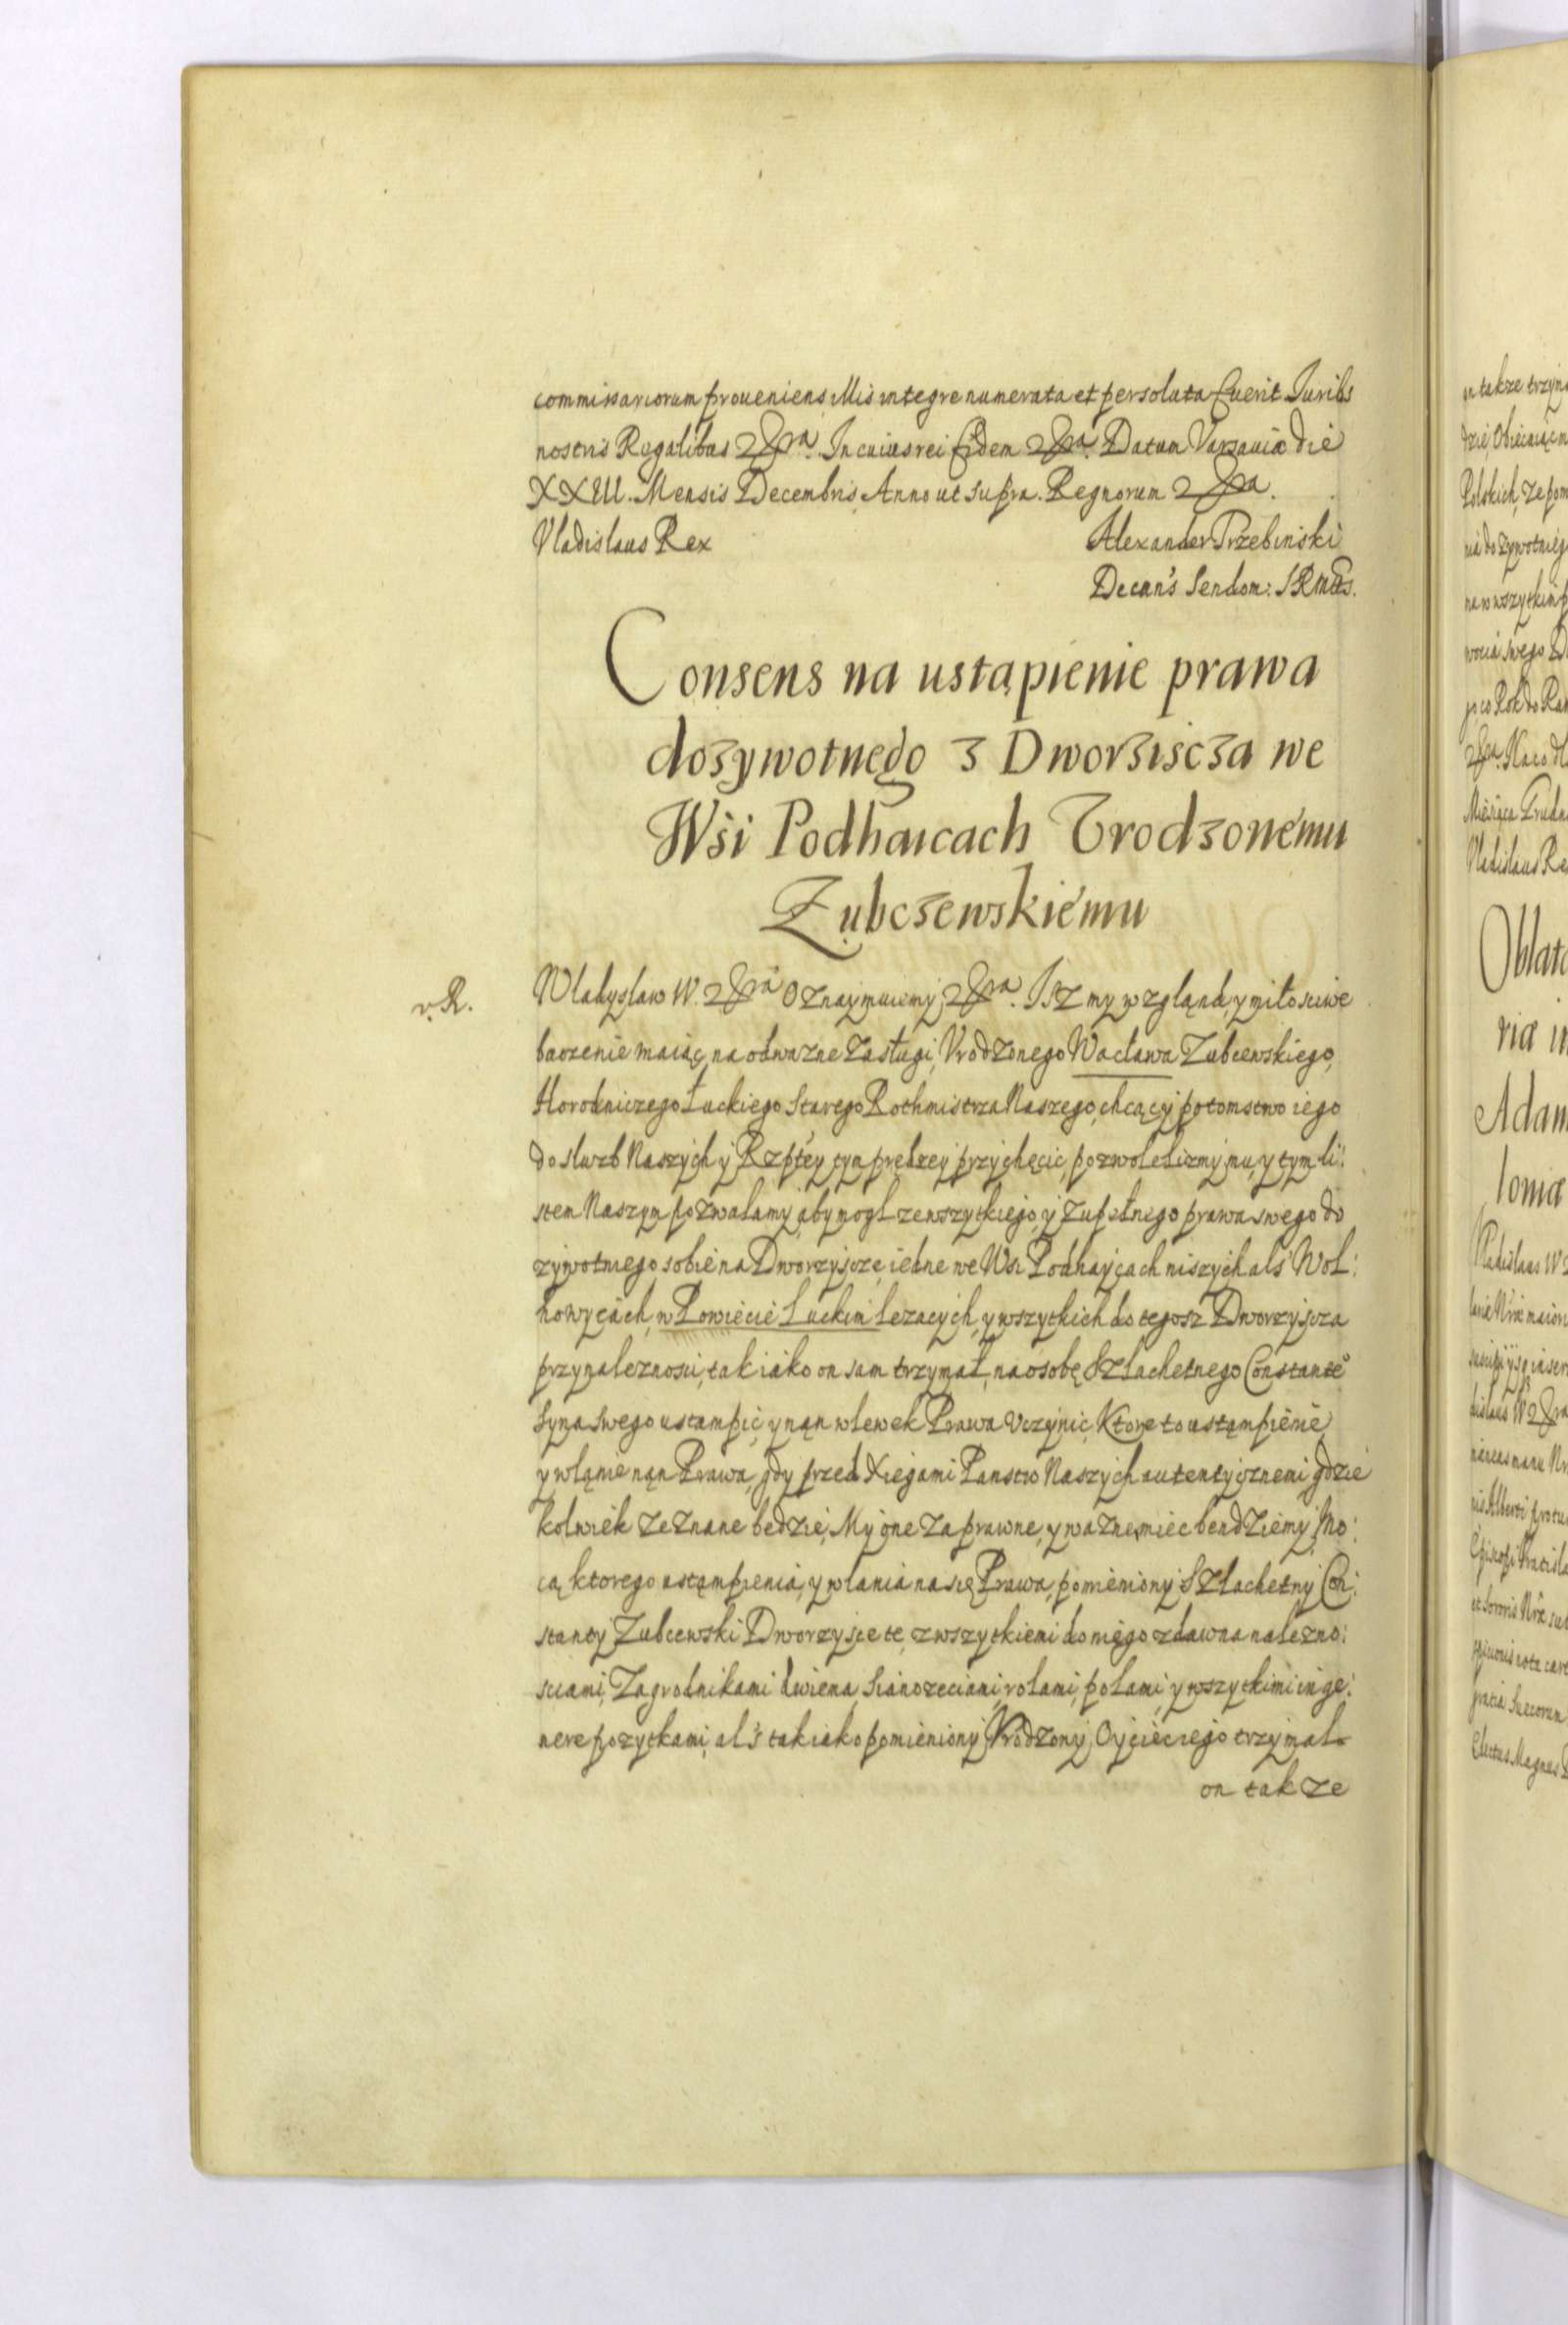 commissariorum proueniens, illis integre numerata et persoluta fuerit. Juribs
nostris Regalibus &ra. In cuius rei fidem &ra. Datum Varsauiæ die
XXIII. Mensis Decembris, Anno ut supra. Regnorum &ra.
Vladislaus Rex
Alexander Trzebinski
Decan's Sendom: SRMtis.
Consens na ustąpienie prawa
dozywotnego z Dworziscza we
Wsi Podhaicach Urodzonemu
Zubczewskiemu
v. R.
Wladyslaw IV. &ra Oznaymuiemy &ra. Isz my wzgląnd, y miłosciwe
baczenie maiąc, na odwazne Zasługi, Vrodzonego Wacława Zubcewskiego,
Horodniczego Łuckiego Starego Rothmistrza Naszego, chcąc y potomstwo iego
do sluzb Naszych y Rzptey tym prędzey przychęcic, pozwolelismy mu, y tym li:
stem Naszym pozwalamy, aby mogł ze wszytkiego, y zupełnego prawa swego do
zywotniego sobie na Dworzyscze iedne we Wsi Podhaycach niszych als Woł:
kowycach, w Powiecie Luckim lezacych, y wszytkich do tegosz Dworzyscza
przynaleznosci, tak iako on sam trzymał, na osobę Szlachetnego Constante°
Syna Swego ustampić, y nąn wlewek Prawa vczynić, Ktore to ustąmpienie
y wląnie nąn Prawa, gdy przed Xiegami Panstw Naszych autentycznemi gdzie
kolwiek zeznane bedzie, My one za prawne, y wazne, miec bendziemy, Mo:
cą ktorego ustąmpienia, y wlania na się Prawa, pomieniony Szlachetny Con:
stanty Zubcewski Dworzysce te, z wszytkiemi do niego zdawna nalezno:
sciami, Zagrodnikami dwiema, Sianozeciami, rolami, polami, y wszytkimi in ge:
nere pozytkami, al's tak iako pomieniony Vrodzony Oyciec iego trzymał
on takze